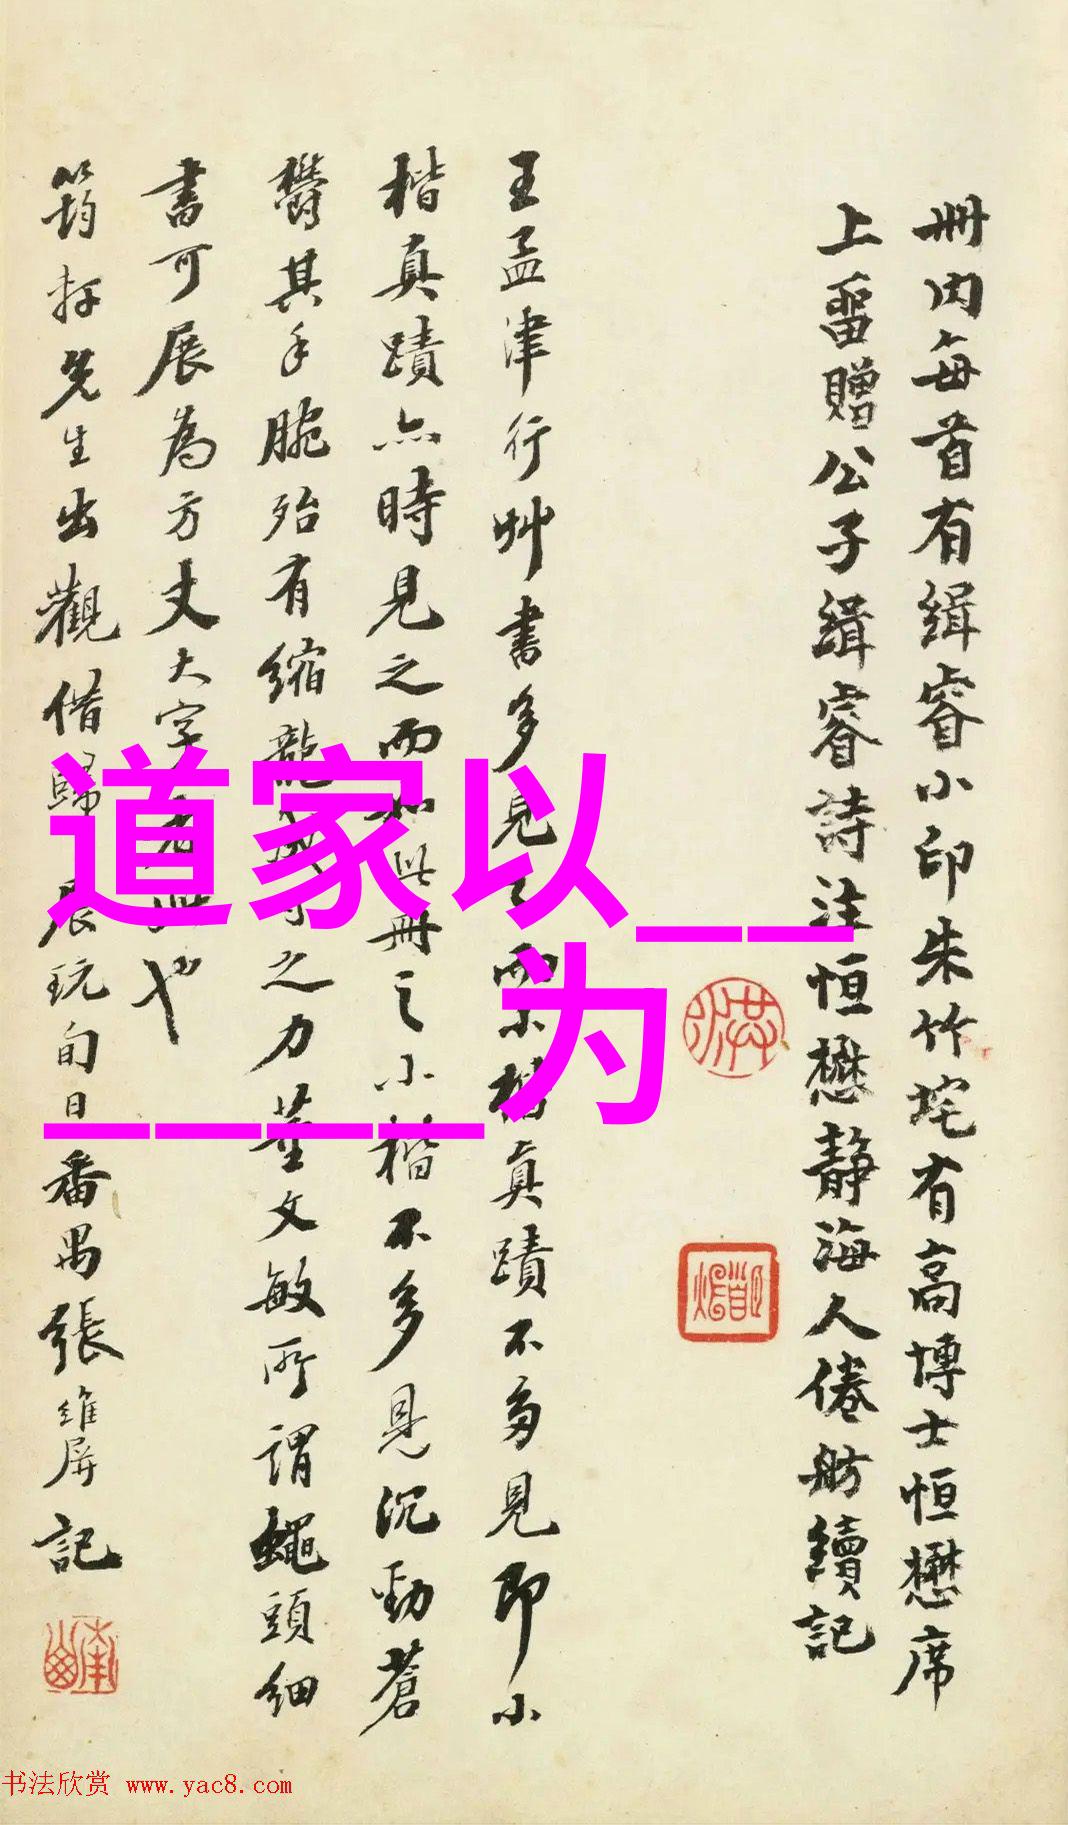 冊内每首有緝睿小印朱竹垞有高博士恒懋席
上畱贈公子緝睿詩注恒懋靜海人倦舫續記
王孟津行艸書多見之而小楷真蹟不多見即小
楷真蹟亦時見之而如此冊之小楷不多見沉勁蒼
欝其手腕殆有縮龍成寸之力董文敏所謂蠅頭細
書可展為方丈大字者此也
筠打先生出觀借歸展玩旬日番禺張維屏記
道家以____
____为
书法欣赏 www.yac8.com